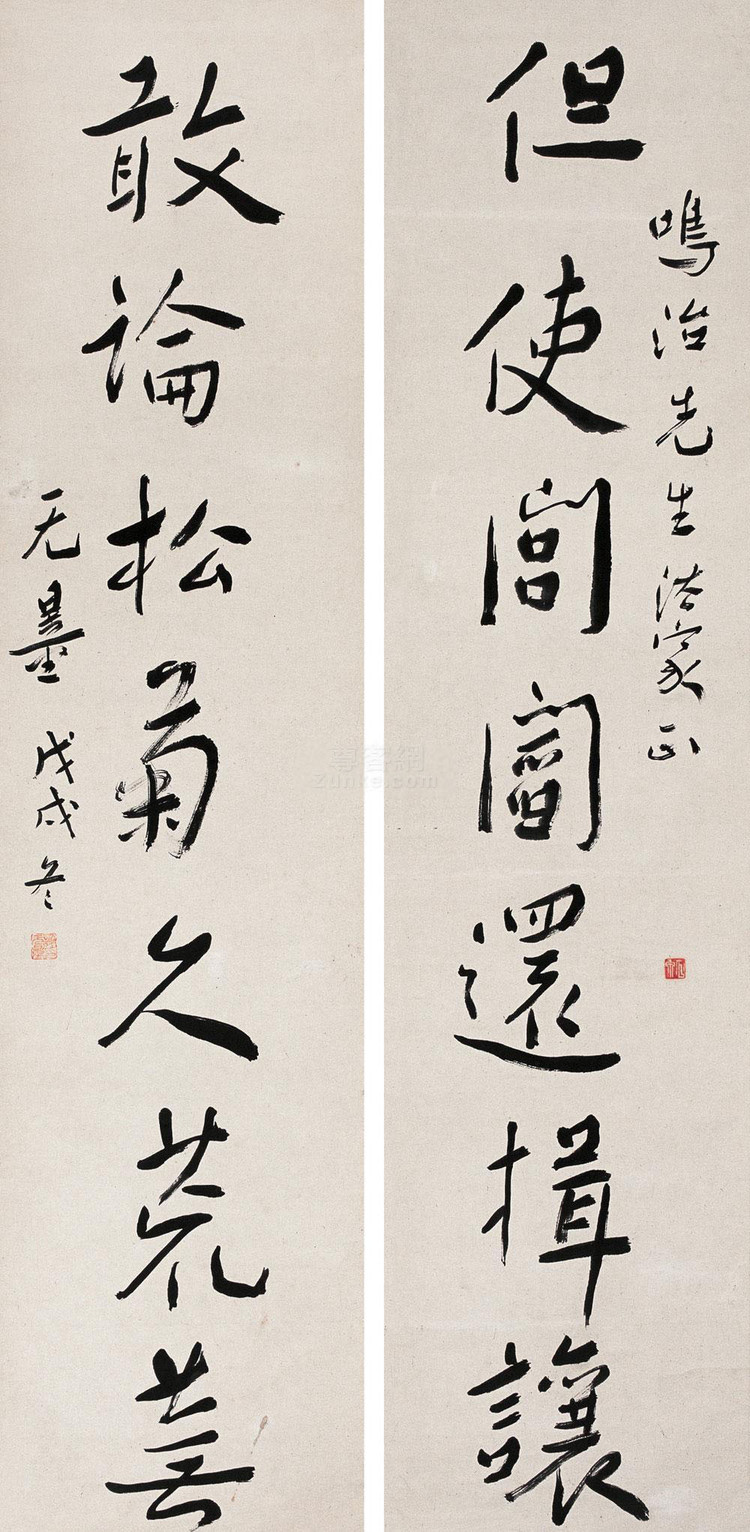 鳴治先生法家正
但使閭閻還揖讓
敢論松菊久荒蕪
无量 戊戌冬
尊客網
Zunke.com